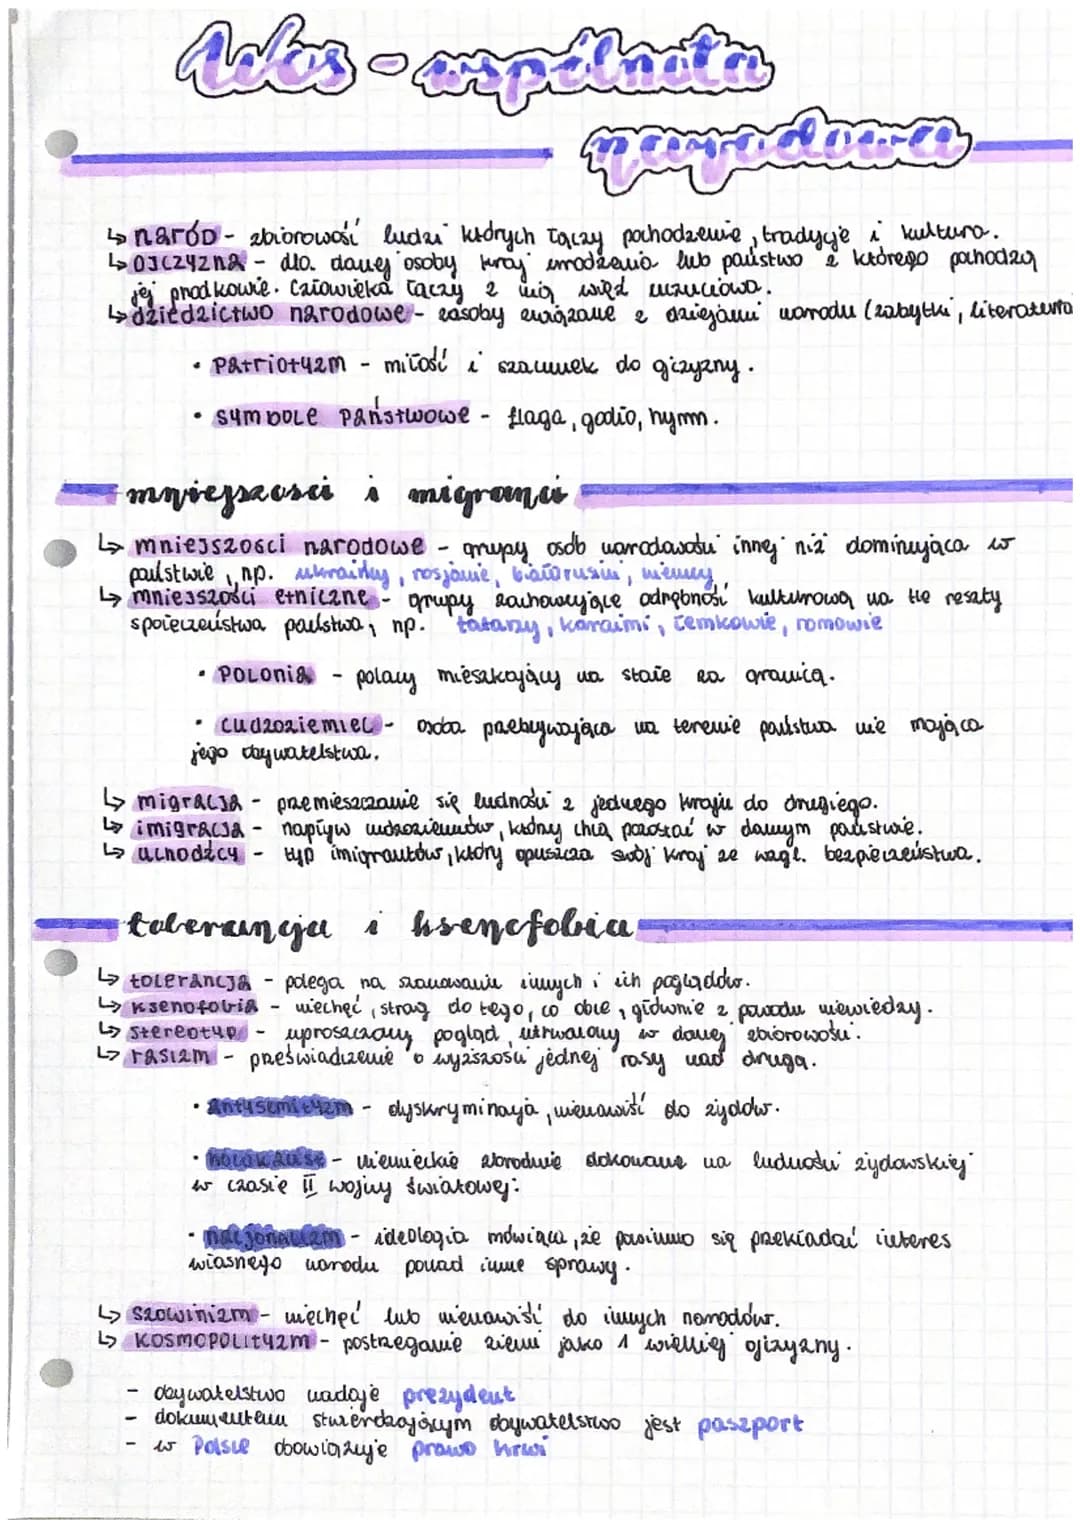 Wos - wspólnota
narodowa
↳ naród - zbiorowość ludzi których łączy pochodzenie, tradycje i kultura.
↳ ojczyzna - dla danej osoby kraj urodzenia lub państwo z którego pochodzą
jej przodkowie. Człowieka łączy z nią więź uczuciowa.
↳ dziedzictwo narodowe - zasoby związane z dziejami narodu (zabytki, literatura
• patriotyzm - miłość i szacunek do ojczyzny.
• symbole państwowe - flaga, godło, hymn.
mniejszości i migranci
↳ mniejszości narodowe - grupy osób narodowości innej niż dominująca w
państwie, np. ukraińcy, rosjanie, białorusini, niemcy
↳ mniejszości etniczne - grupy zachowujące odrębność kulturową na tle reszty
społeczeństwa państwa, np. tatarzy, karaimi, łemkowie, romowie
• polonia - polacy mieszkający na stałe za granicą.
• cudzoziemiec - osoba przebywająca na terenie państwa nie mająca
jego obywatelstwa.
↳ migracja - przemieszczanie się ludności z jednego kraju do drugiego.
↳ imigracja - napływ cudzoziemców, którzy chcą pozostać w danym państwie.
↳ uchodźcy - typ imigrantów, który opuszcza swój kraj ze wzgl. bezpieczeństwa.
tolerancja i ksenofobia
↳ tolerancja - polega na szanowaniu innych i ich poglądów.
↳ ksenofobia - niechęć, strach do tego, co obce, głównie z powodu niewiedzy.
↳ stereotyp - uproszczony pogląd, utrwalony w danej zbiorowości.
↳ rasizm - przeświadczenie o wyższości jednej rasy nad drugą.
• antysemityzm - dyskryminacja, nienawiść do żydów.
• holokaust - niemieckie zbrodnie dokonane na ludności żydowskiej
w czasie II wojny światowej.
• nacjonalizm - ideologia mówiąca, że powinno się przekładać interes
własnego narodu ponad inne sprawy.
↳ szowinizm - niechęć lub nienawiść do innych narodów.
↳ kosmopolityzm - postrzeganie ziemi jako 1 wielkiej ojczyzny.
- obywatelstwo nadaje prezydent
- dokumentem stwierdzającym obywatelstwo jest paszport
- w Polsce obowiązuje prawo krwi